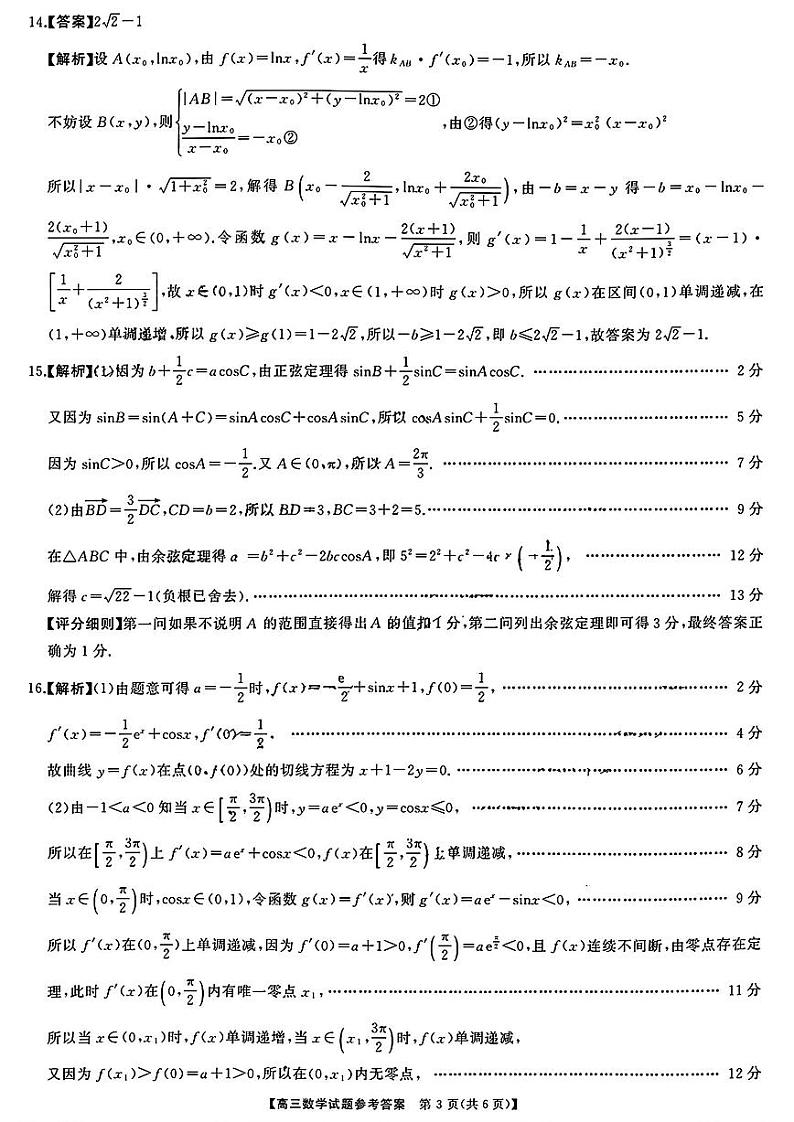 14.【答案】2√2－1
【解析】设 A(x₀,lnx₀),由 f(x)=lnx,f′(x)=1/x得k_AB·f′(x₀)=－1,所以 k_AB=－x₀.
不妨设 B(x,y),则{|AB|=√((x－x₀)²+(y－lnx₀)²)=2① (y－lnx₀)/(x－x₀)=－x₀② ,由②得(y－lnx₀)²=x₀²(x－x₀)²
所以|x－x₀|·√(1+x₀²)=2,解得 B(x₀－2/√(x₀²+1),lnx₀+2x₀/√(x₀²+1)),由－b=x－y 得－b=x₀－lnx₀－
2(x₀+1)/√(x₀²+1),x₀∈(0,+∞).令函数 g(x)=x－lnx－2(x+1)/√(x²+1),则 g′(x)=1－1/x+2(x－1)/(x²+1)^(3/2)=(x－1)·
[1/x+2/(x²+1)^(3/2)],故 x∈(0,1)时 g′(x)<0,x∈(1,+∞)时 g(x)>0,所以 g(x)在区间(0,1)单调递减,在
(1,+∞)单调递增,所以 g(x)≥g(1)=1－2√2,所以－b≥1－2√2,即 b≤2√2－1,故答案为 2√2－1.
15.【解析】(1)因为 b+1/2c=acosC,由正弦定理得 sinB+1/2sinC=sinAcosC. …… 2 分
又因为 sinB=sin(A+C)=sinAcosC+cosAsinC,所以 cosAsinC+1/2sinC=0. …… 5 分
因为 sinC>0,所以 cosA=－1/2.又 A∈(0,π),所以 A=2π/3. …… 7 分
(2)由BD→=3/2DC→,CD=b=2,所以 BD=3,BC=3+2=5. …… 9 分
在△ABC 中,由余弦定理得 a =b²+c²－2bccosA,即 5²=2²+c²－4c×(－1/2), …… 12 分
解得 c=√22－1(负根已舍去). …… 13 分
【评分细则】第一问如果不说明 A 的范围直接得出 A 的值扣 1 分,第二问列出余弦定理即可得 3 分,最终答案正
确为 1 分.
16.【解析】(1)由题意可得 a=－1/2时,f(x)=－e/2+sinx+1,f(0)=1/2, …… 2 分
f′(x)=－1/2eˣ+cosx,f′(0)=1/2. …… 4 分
故曲线 y=f(x)在点(0,f(0))处的切线方程为 x+1－2y=0. …… 6 分
(2)由－1<a<0 知当 x∈[π/2,3π/2]时,y=aeˣ<0,y=cosx≤0, …… 7 分
所以在[π/2,3π/2]上 f′(x)=aeˣ+cosx<0,f(x)在[π/2,3π/2]上单调递减, …… 8 分
当 x∈(0,π/2)时,cosx∈(0,1),令函数 g(x)=f′(x),则 g′(x)=aeˣ－sinx<0, …… 9 分
所以 f′(x)在(0,π/2)上单调递减,因为 f′(0)=a+1>0,f′(π/2)=ae^(π/2)<0,且 f(x)连续不间断,由零点存在定
理,此时 f′(x)在(0,π/2)内有唯一零点 x₁, …… 11 分
所以当 x∈(0,x₁)时,f(x)单调递增,当 x∈(x₁,3π/2)时,f(x)单调递减,
又因为 f(x₁)>f(0)=a+1>0,所以在(0,x₁)内无零点, …… 12 分
【高三数学试题参考答案 第 3 页(共 6 页)】